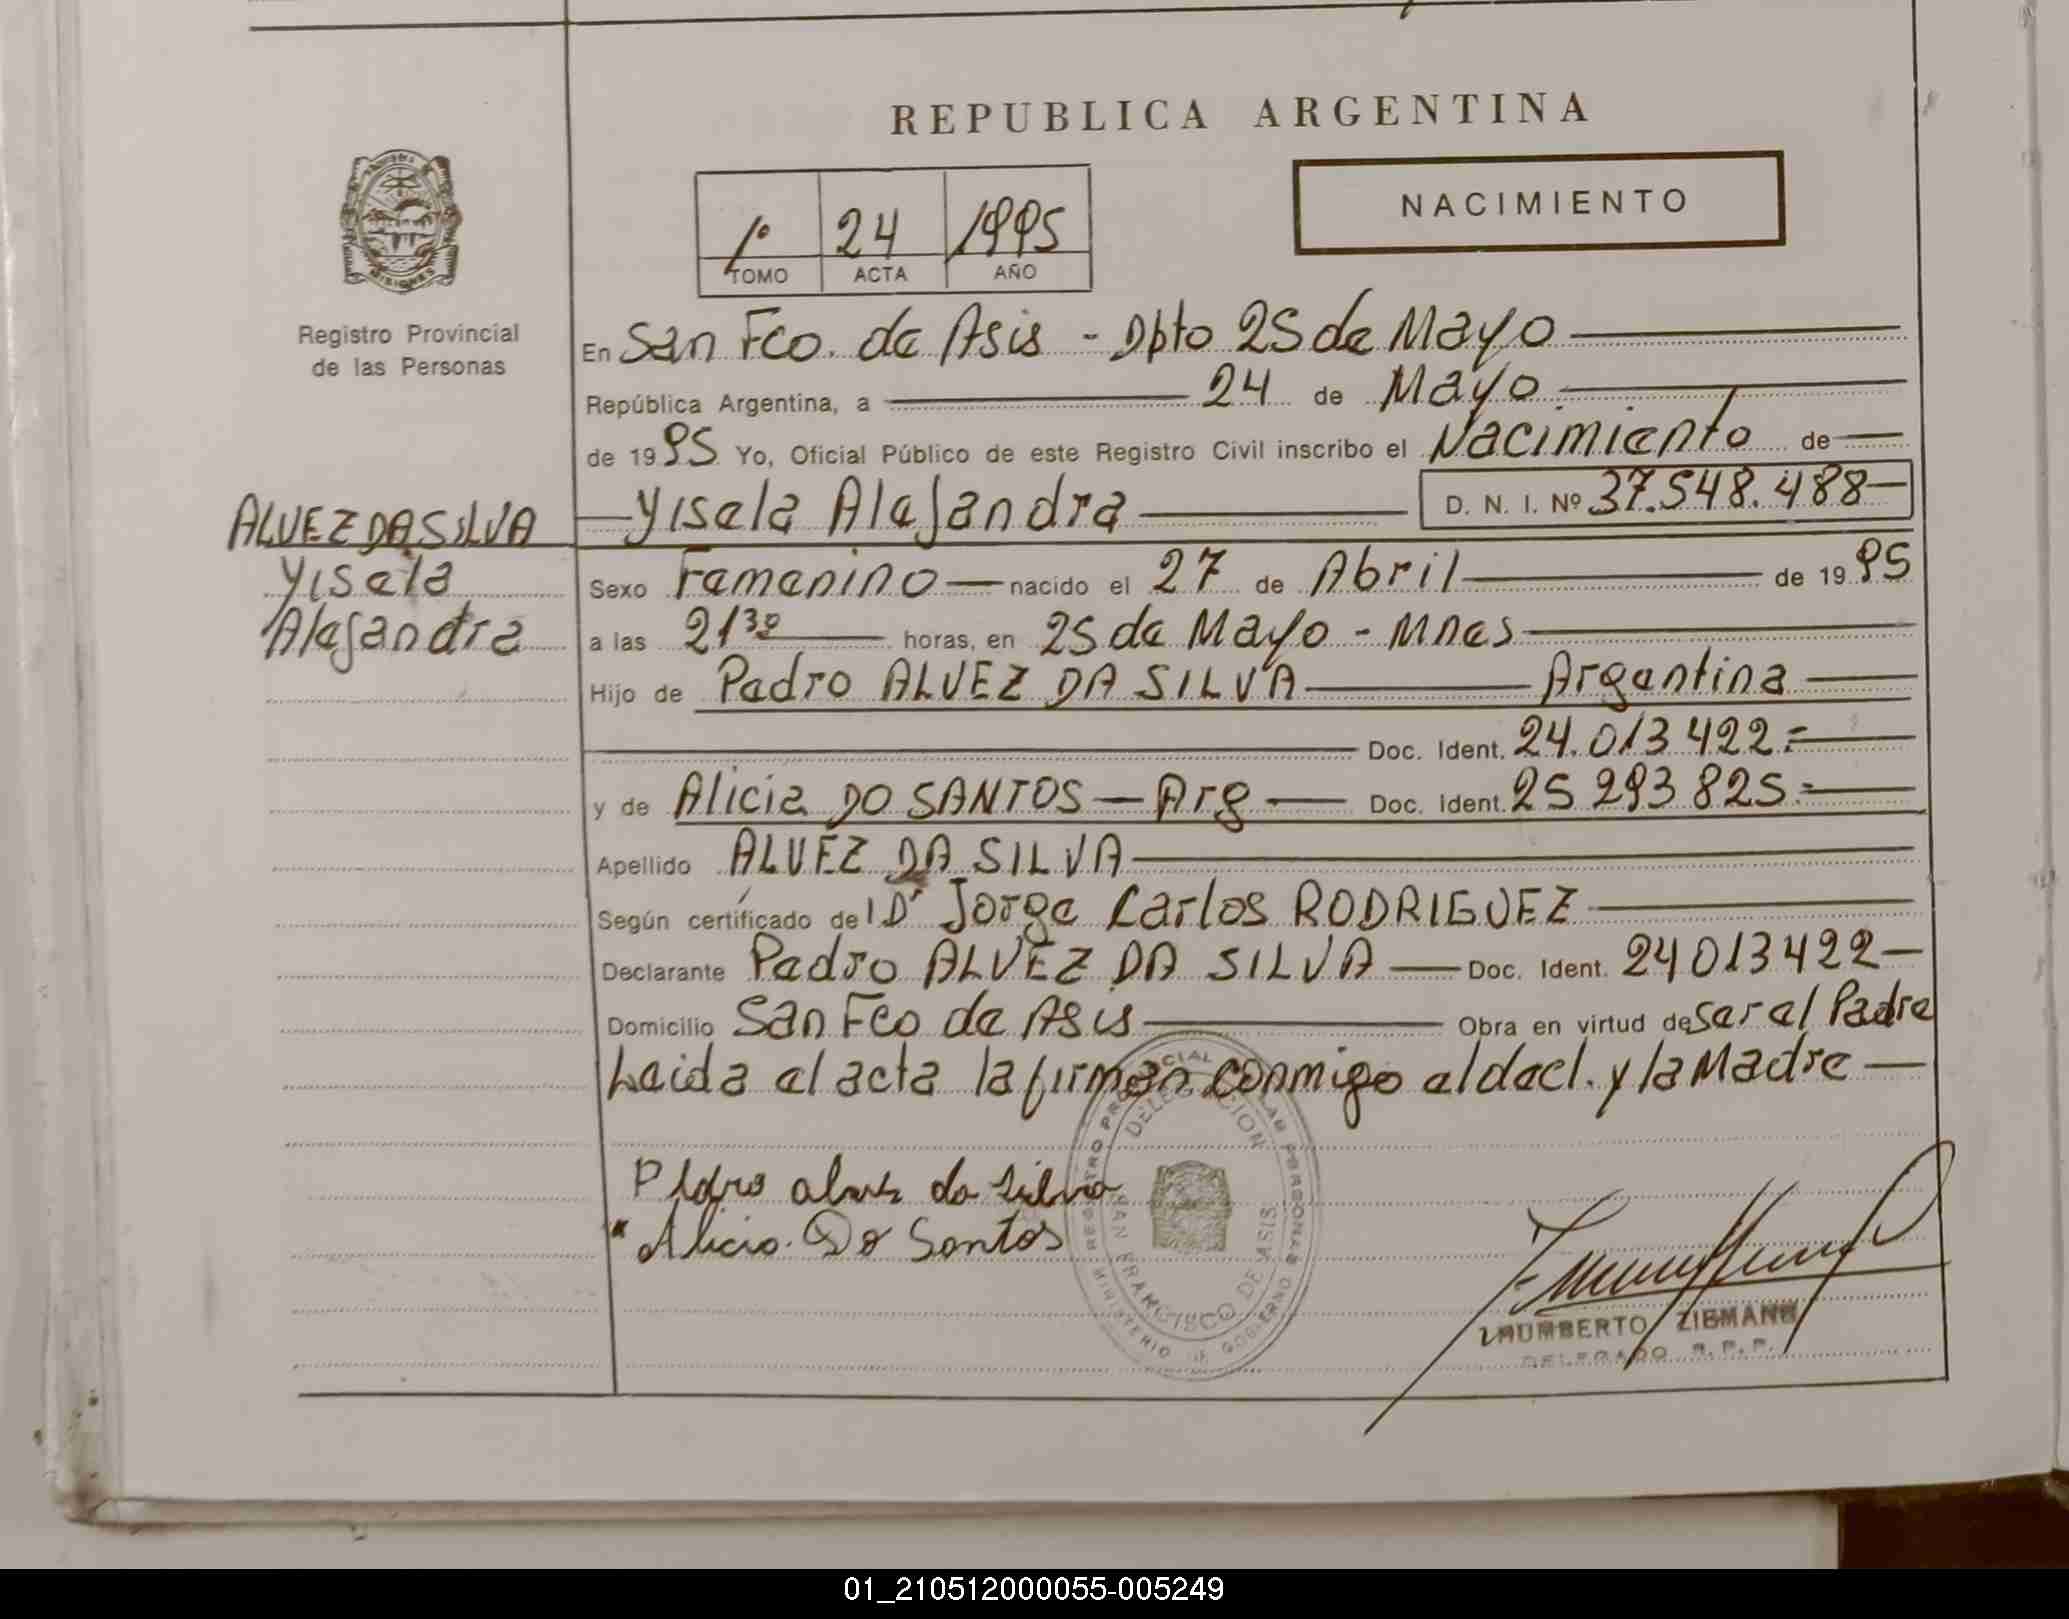 REPUBLICA ARGENTINA
NACIMIENTO
1º 24 1995
TOMO ACTA AÑO
MISIONES
Registro Provincial
de las Personas
En San Fco. de Asis - Dpto 25 de Mayo
República Argentina, a 24 de Mayo
de 1995 Yo, Oficial Público de este Registro Civil inscribo el Nacimiento de
Yisela Alejandra D. N. I. Nº 37.548.488
ALVEZ DA SILVA
Yisela
Alejandra
Sexo Femenino nacido el 27 de Abril de 1995
a las 21³⁰ horas, en 25 de Mayo - Mnes
Hijo de Pedro ALVEZ DA SILVA Argentina
Doc. Ident. 24.013 422.=
y de Alicia DO SANTOS - Arg - Doc. Ident. 25 293 825.=
Apellido ALVEZ DA SILVA
Según certificado del Dr Jorge Carlos RODRIGUEZ
Declarante Pedro ALVEZ DA SILVA - Doc. Ident. 24013422-
Domicilio San Fco de Asis Obra en virtud de Ser el Padre
Leida el acta la firman conmigo el decl. y la Madre
Pedro alvez da silva
Alicia Do Santos
REGISTRO PROVINCIAL DE LAS PERSONAS
DELEGACION
SAN FRANCISCO DE ASIS
MINISTERIO DE GOBIERNO
HUMBERTO ZIEMANN
DELEGADO R. P. P.
01_210512000055-005249